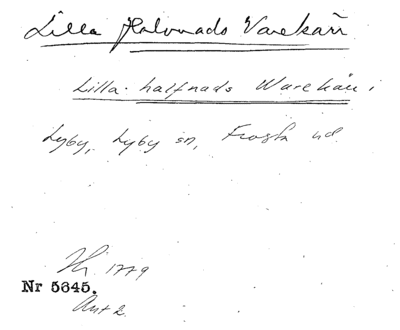 Lilla Halvnads Varekärr
Lilla halfnads Warekärr i
Lyby, Lyby sn, Frosta hd
Hi 1779
Nr 5645.
Akt 2.